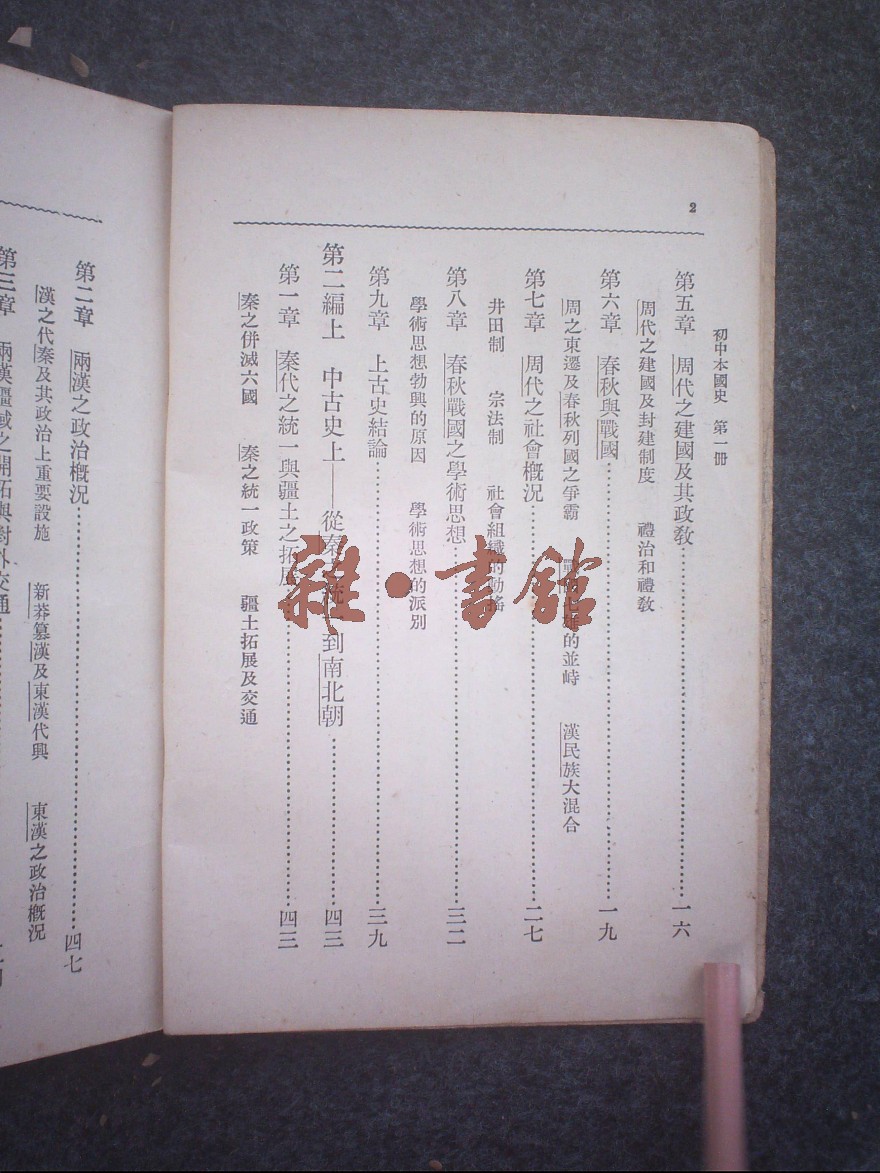 2
初中本國史　第一冊
第五章　周代之建國及其政敎……一六
周代之建國及封建制度　禮治和禮敎
第六章　春秋與戰國……一九
周之東遷及春秋列國之爭霸　戰國七雄的並峙　漢民族大混合
第七章　周代之社會槪況……二七
井田制　宗法制　社會組織的動搖
第八章　春秋戰國之學術思想……三二
學術思想勃興的原因　學術思想的派別
第九章　上古史結論……三九
第二編上　中古史上——從秦統一到南北朝……四三
第一章　秦代之統一與疆土之拓展……四三
秦之併滅六國　秦之統一政策　疆土拓展及交通
第二章　兩漢之政治槪況……四七
漢之代秦及其政治上重要設施　新莽篡漢及東漢代興　東漢之政治槪況
第三章　兩漢疆域之開拓與對外交通……
雜·書館